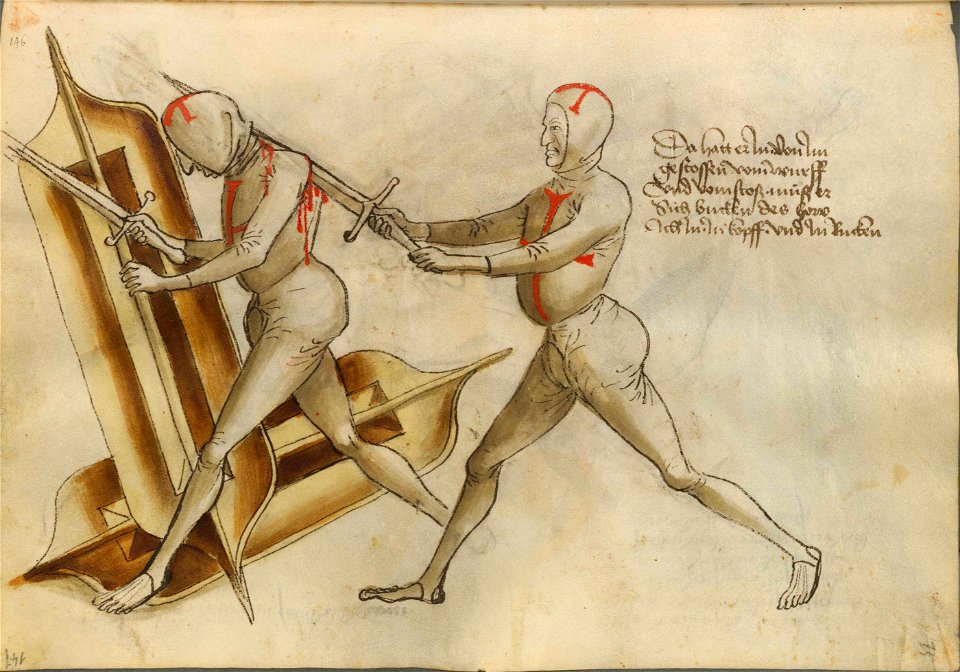 146
Da hatt er in von im
gestossen vom wurff
Und vom stos muss er
Sich bucken des how
Ich in in kopff und in Rucken